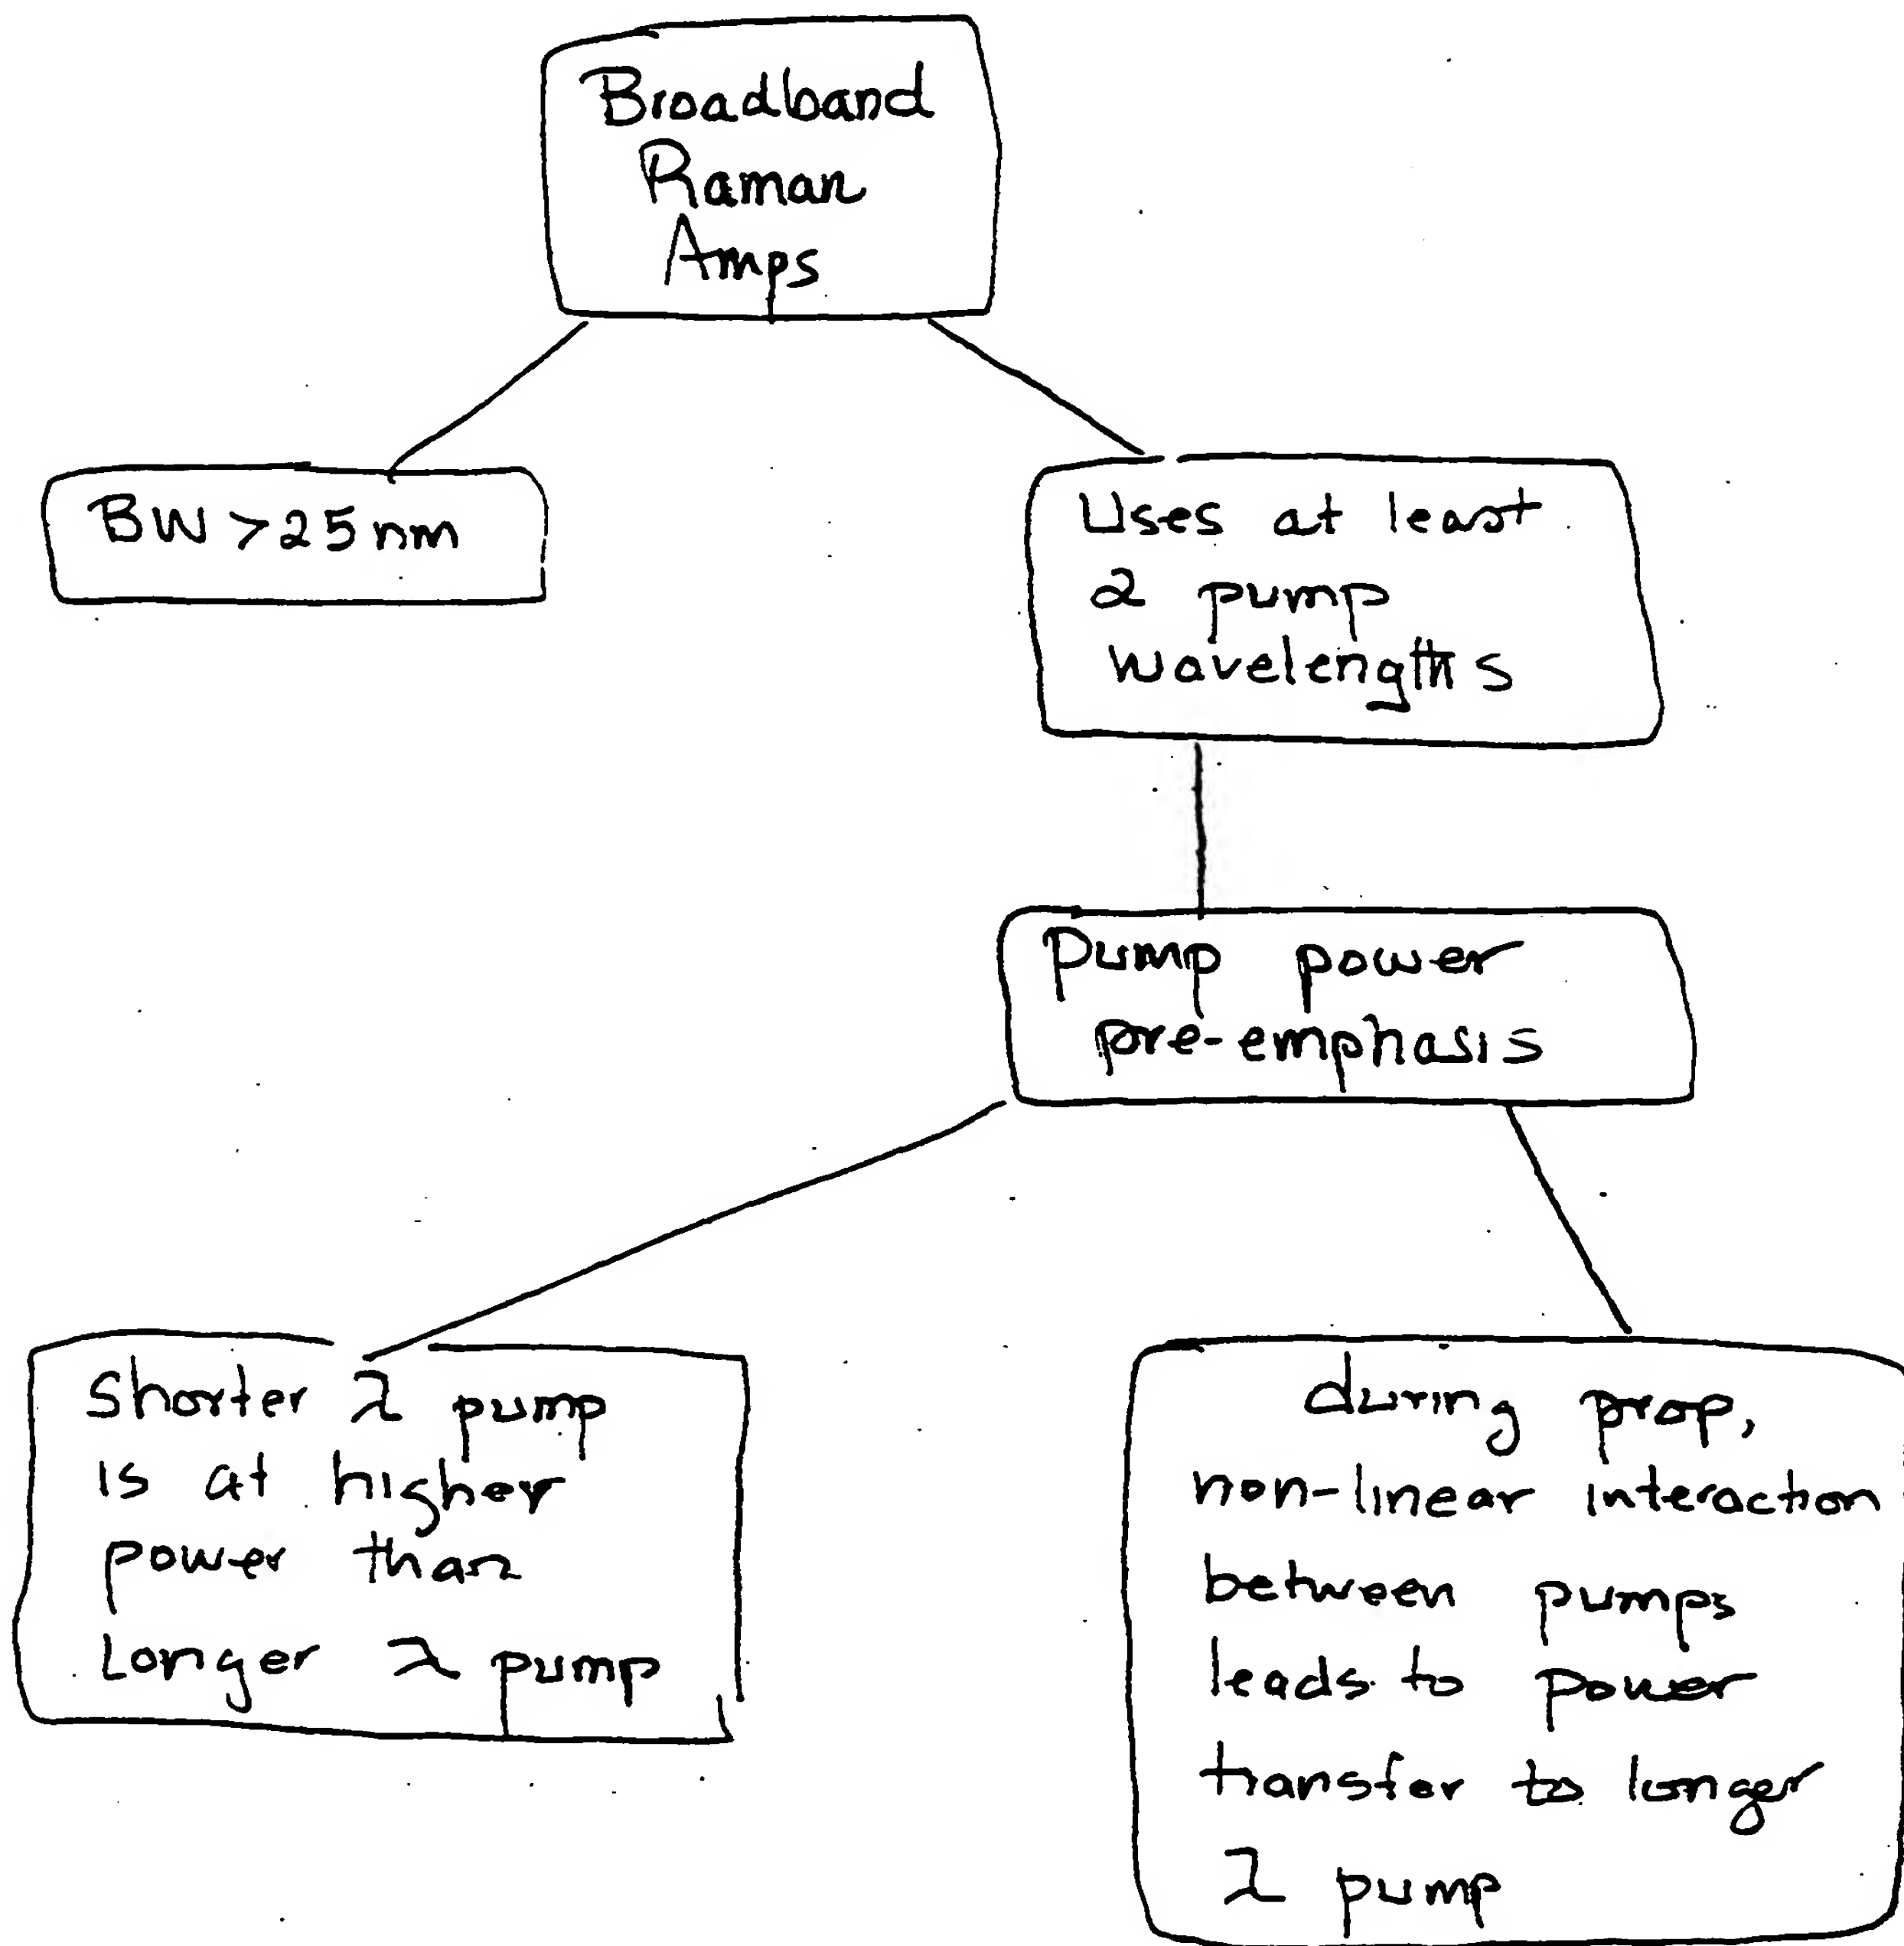 Broadband
Raman
Amps
BW >25nm
Uses at least
2 pump
wavelengths
Pump power
pre-emphasis
Shorter λ pump
is at higher
power than
Longer λ pump
during prop,
non-linear interaction
between pumps
leads to power
transfer to longer
λ pump